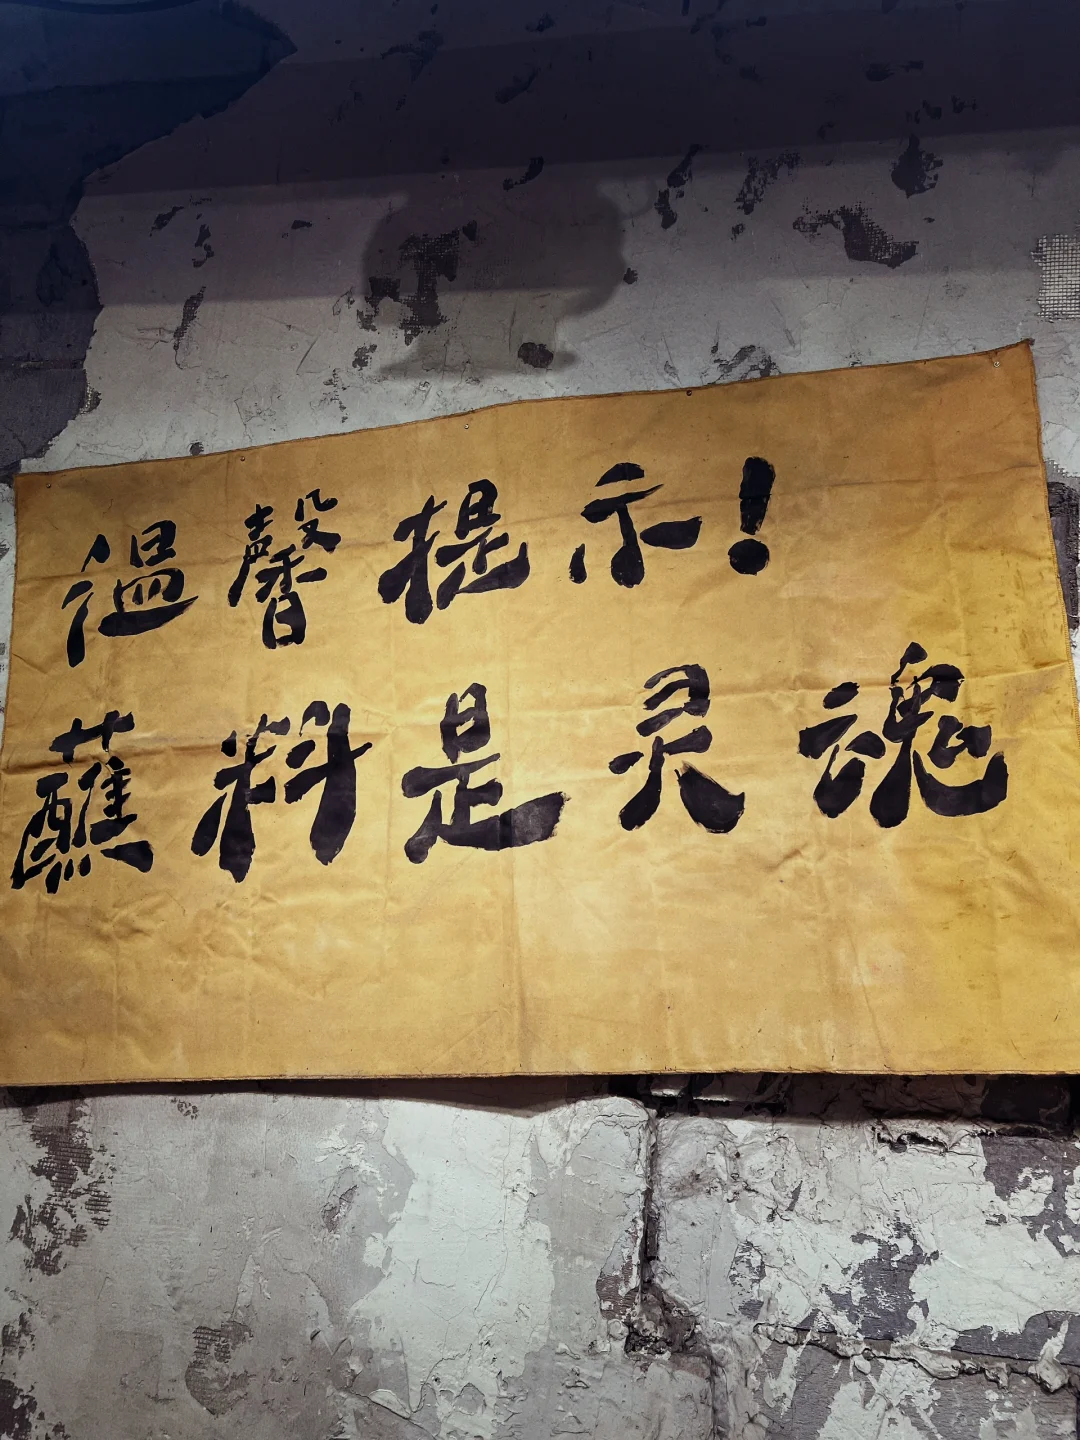 温馨提示!
蘸料是灵魂